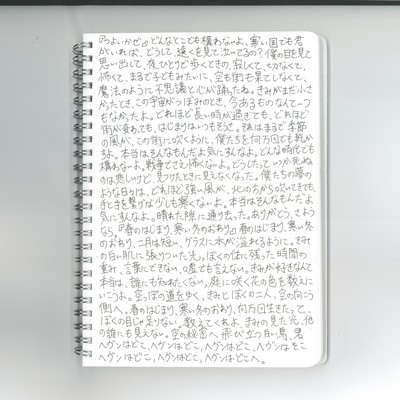 『つよいかぜ』どんなとこでも構わないよ、寒い国でも君
がいれば、どうして遠くを見て泣いてるの?僕の目を見て
思い出して、夜ひとり歩くときの、寂しくて、切なくて、
怖くて、まるで子どもみたいに、空も街も果てしなくて、
魔法のように不思議と心が踊ったね。きみがまだ小さ
かったとき、この宇宙がつぼみのとき、今あるものなんて一つ
もなかったよ。どれほど長い時が過ぎても、どれほど
街が変わっても、はじまりはいつもそう。それはまるで季節
の風が、この街に吹くように、僕たちを何万回でも乾か
すよ。本当はそんなもんだよ気にすんなよ。どんな時代でも
構わないよ。戦争でさえ怖くないよ。どうしていつか死ぬ
のは悲しいけど、見つけたときに見えなくなった。僕たちの夢の
ような日々は、どれほど強い風が、北の方から吹いてきても、
手と手を繋げば少しも寒くないよ。本当はそんなもんだよ
気にすんなよ。晴れた隙に通り去った。ありがとう、さような
ら。『春のはじまり、寒い冬のおわり』春のはじまり、寒い冬
のおわり、二月は短い、グラスに水が溢れるように。きみ
の白い肌に張りついた光。ぼくの体に残った時間の
重み、言葉にできない、嘘でも言えない。きみが好きなんて
本当は、誰にも知れたくない。庭に咲く花の色を数えに
いこうよ。空っぽの道をゆく、きみとぼくの二人、空の向こう
側へ。春のはじまり、寒い冬のおわり、何万回生きたって、
ぼくの目じゃ足りない。教えてくれよ、きみの見た光、他
の誰にも見えない。空の秘密へ飛び立つ白い鳥、君
ヘヴンはどこ、ヘヴンはどこ、ヘヴンはどこ、ヘヴンはどこ
ヘヴンはどこ、ヘヴンはどこ、ヘヴンはどこへ。